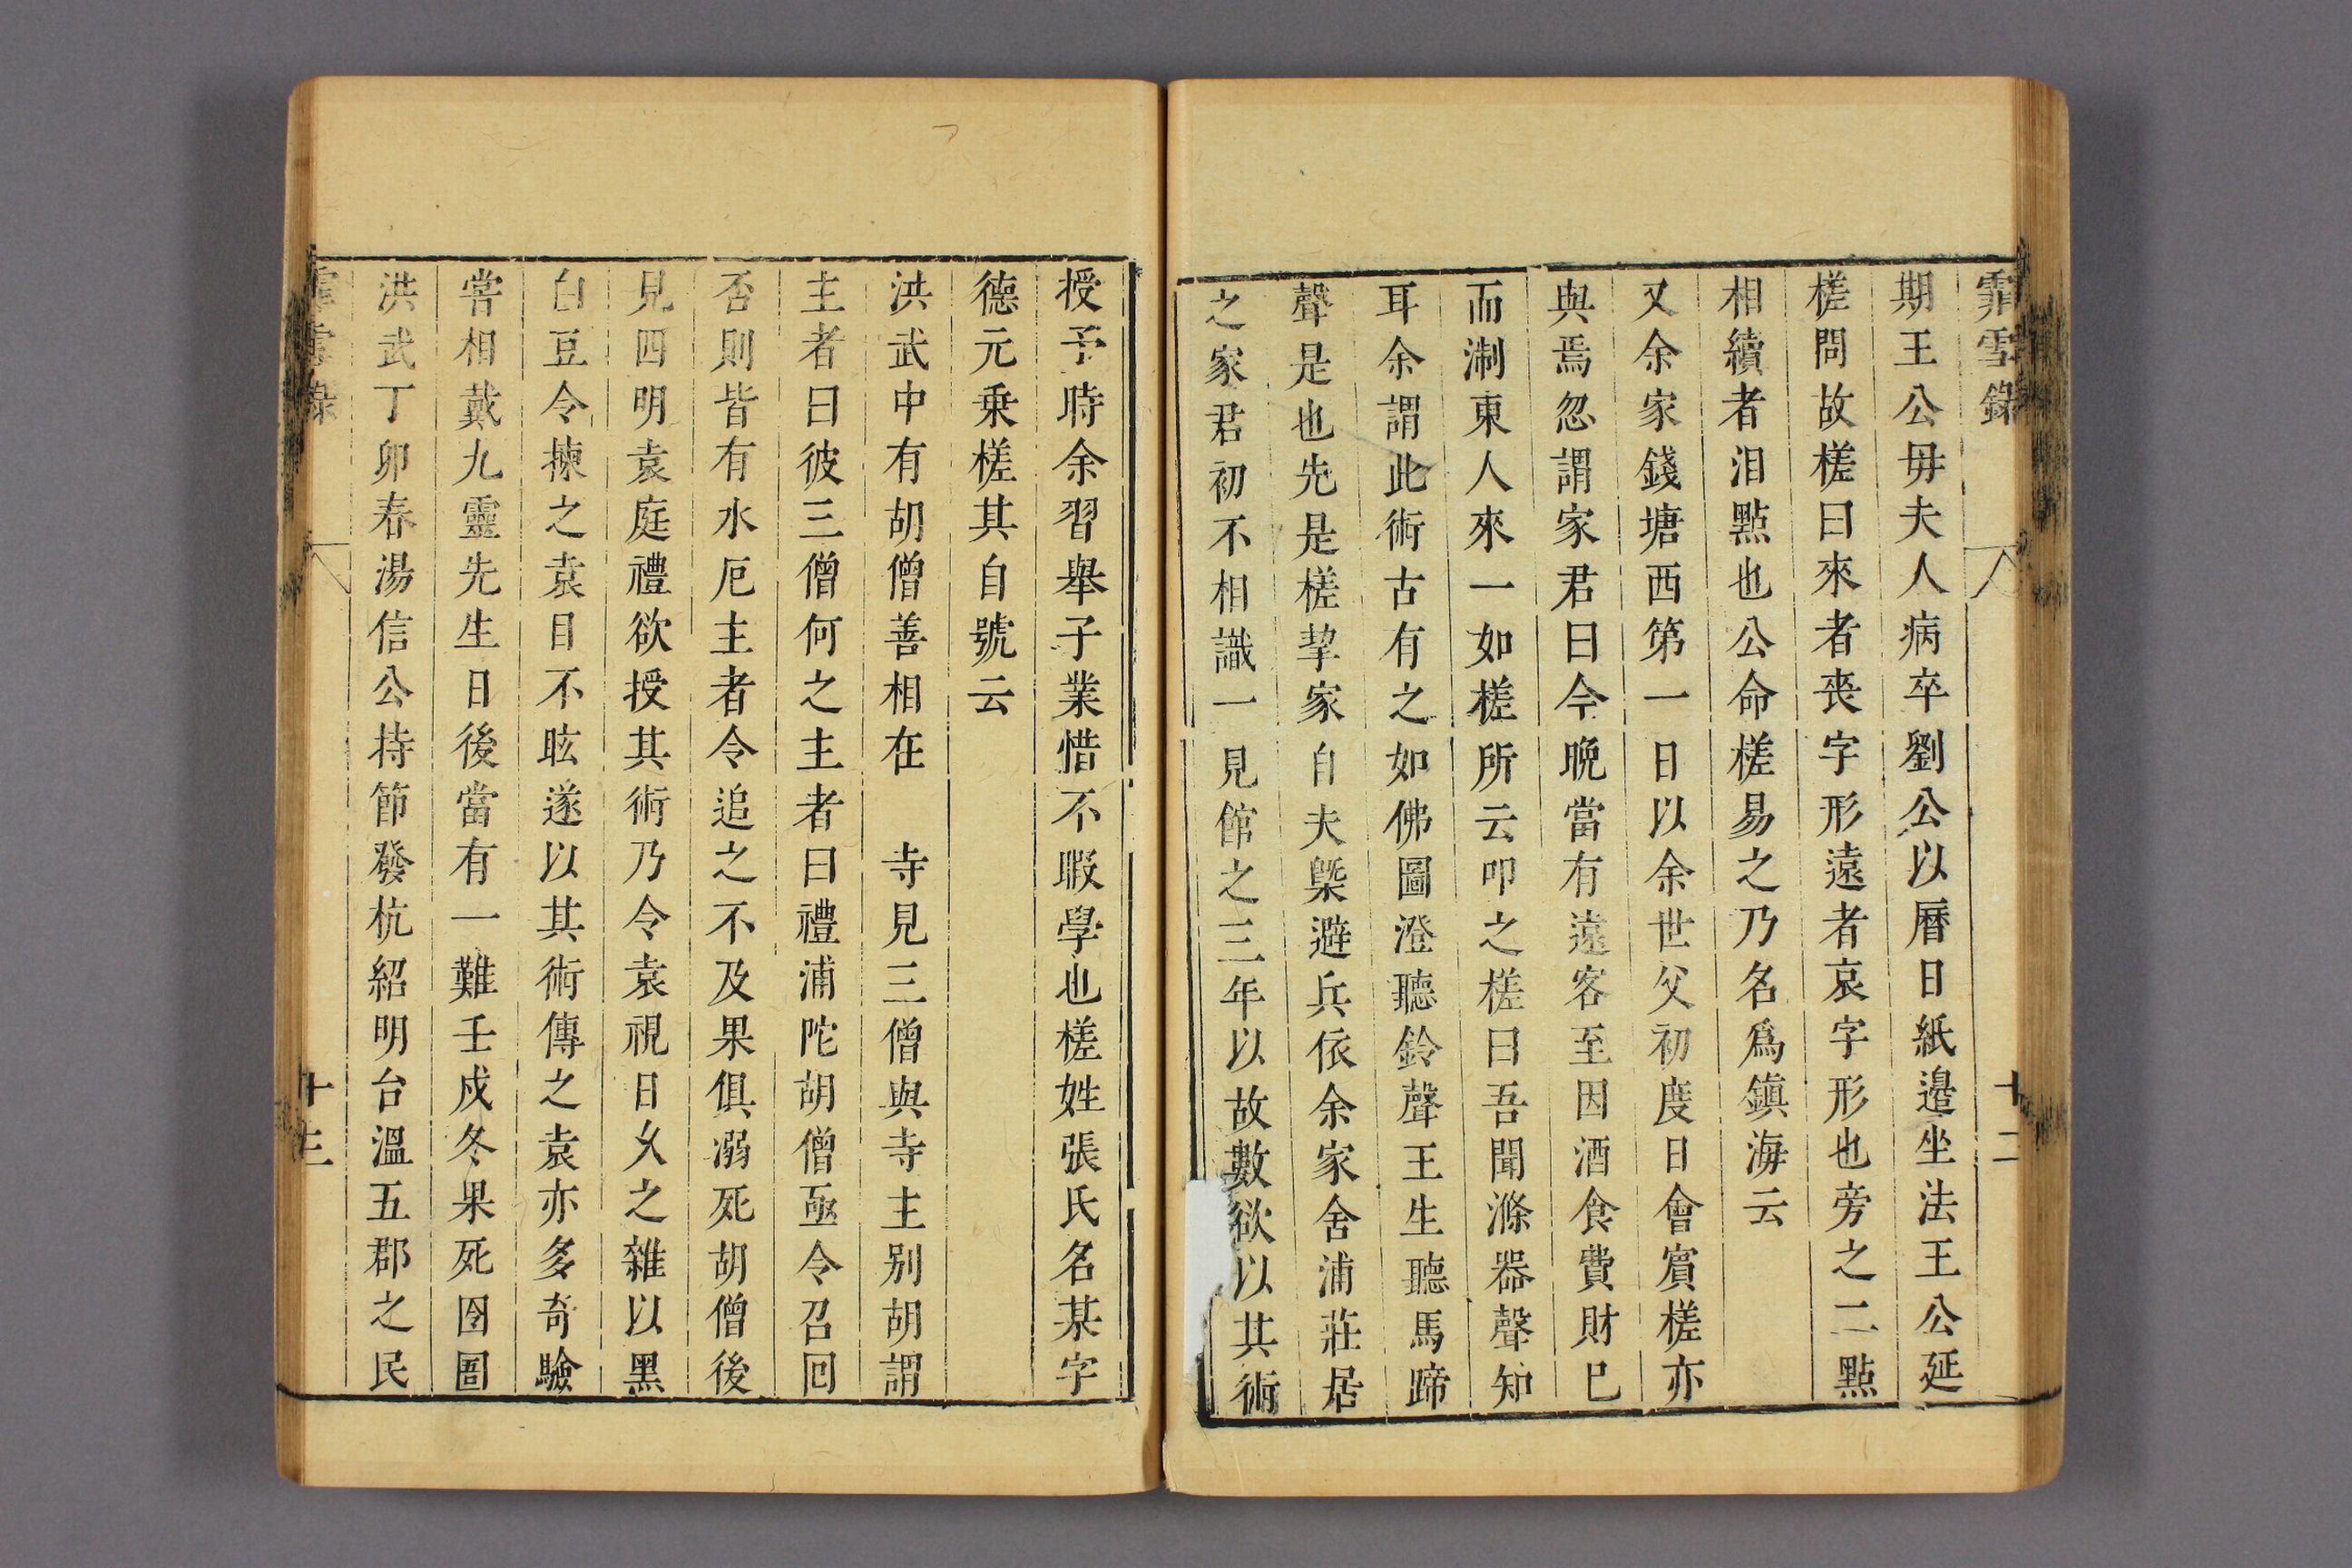 霏雪錄
十二
期王公毋夫人病卒劉公以曆日紙邉坐法王公延
槎問故槎曰來者喪字形遠者哀字形也旁之二點
相續者泪點也公命槎易之乃名爲鎭海云
又余家錢塘西第一日以余世父初度日會賓槎亦
與焉忽謂家君曰今晚當有遠客至因酒食費財已
而淛東人來一如槎所云叩之槎曰吾聞滌器聲知
耳余謂此術古有之如佛圖澄聽鈴聲王生聽馬蹄
聲是也先是槎挈家自夫槩避兵依余家舍浦莊居
之家君初不相識一見館之三年以故數欲以其術
授予時余習舉子業惜不暇學也槎姓張氏名某字
德元乗槎其自號云
洪武中有胡僧善相在　寺見三僧與寺主别胡謂
主者曰彼三僧何之主者曰禮浦陀胡僧亟令召囘
否則皆有水厄主者令追之不及果俱溺死胡僧後
見四明袁庭禮欲授其術乃令袁視日乆之雜以黑
白豆令揀之袁目不眩遂以其術傳之袁亦多奇驗
嘗相戴九靈先生日後當有一難壬戍冬果死囹圄
洪武丁卯春湯信公持節發杭紹明台溫五郡之民
霏雪錄
十三